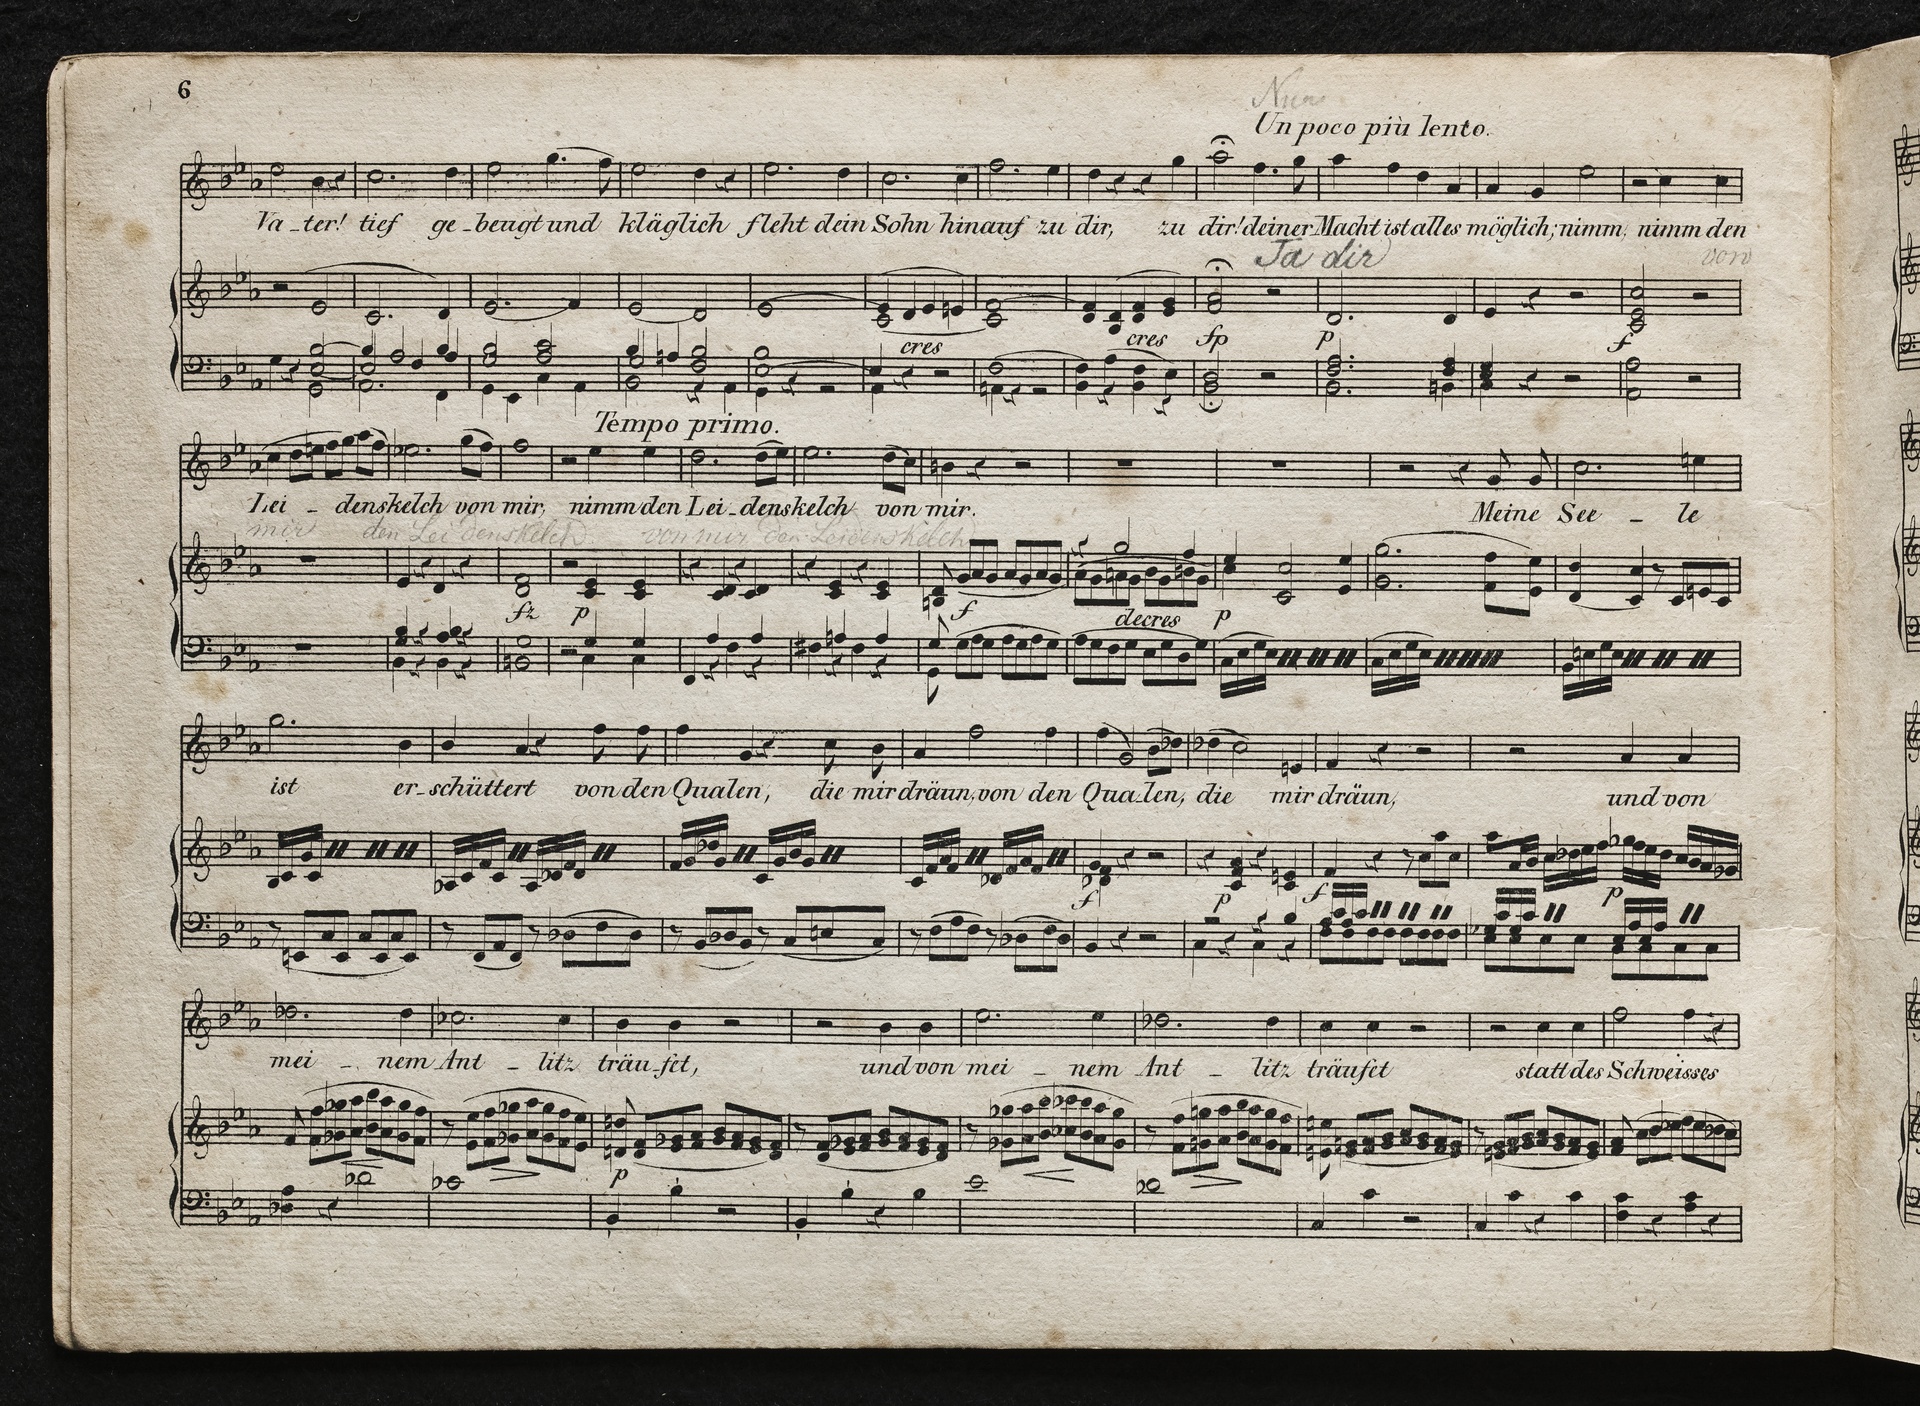 6
Nur
Un poco più lento.
Va_ter! tief ge_beugt und kläglich fleht dein Sohn hinauf zu dir, zu dir! deiner Macht ist alles möglich; nimm, nimm den
Ja dir
von
cres cres fp p f
Tempo primo.
Lei _ denskelch von mir, nimm den Lei_denskelch von mir. Meine See _ le
mir den Lei denskelch von mir den Leidenskelch
fz p f decres p
ist er_schüttert von den Qualen, die mir dräun, von den Qua_len, die mir dräun, und von
f p f p
mei _ nem Ant _ litz träu_fet, und von mei _ nem Ant _ litz träufet statt des Schweisses
p